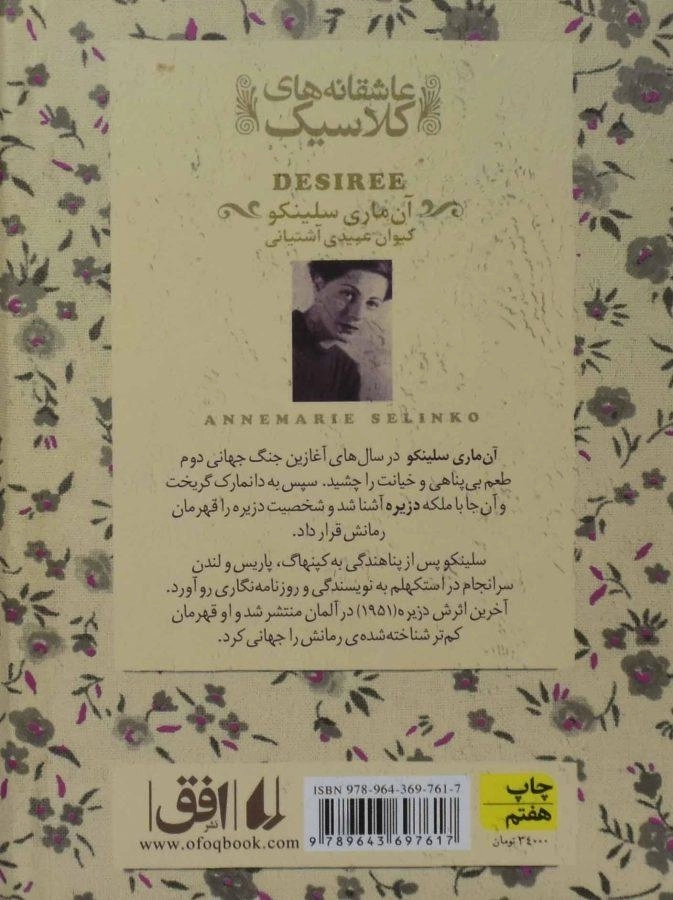 عاشقانه‌های
کلاسیک
DESIREE
آن‌ماری سلینکو
کیوان عبیدی آشتیانی
ANNEMARIE SELINKO
آن‌ماری سلینکو در سال‌های آغازین جنگ جهانی دوم
طعم بی‌پناهی و خیانت را چشید. سپس به دانمارک گریخت
و آن‌جا با ملکه دزیره آشنا شد و شخصیت دزیره را قهرمان
رمانش قرار داد.
سلینکو پس از پناهندگی به کپنهاگ، پاریس و لندن
سرانجام در استکهلم به نویسندگی و روزنامه‌نگاری رو آورد.
آخرین اثرش دزیره(۱۹۵۱) در آلمان منتشر شد و او قهرمان
کم‌تر شناخته‌شده‌ی رمانش را جهانی کرد.
نشر افق
www.ofoqbook.com
ISBN 978-964-369-761-7
9 789643 697617
چاپ
هفتم
۳۴۰۰۰ تومان